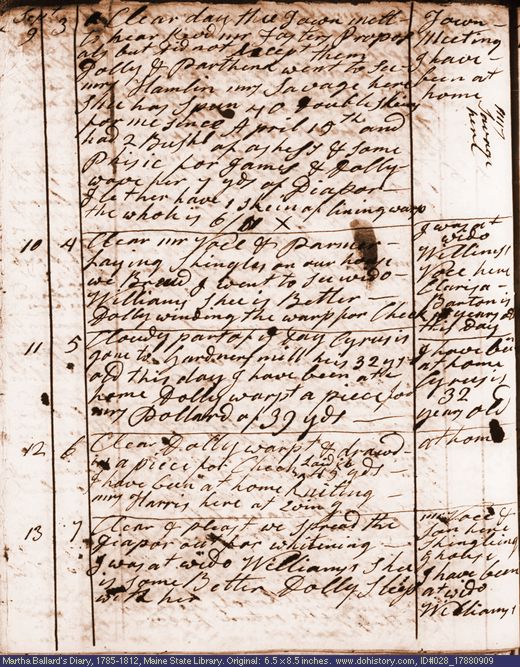 Sept
9 3 Clear day the Town mett
to hear Revd mr Fosters Propos
als but did not accept them
Dolly & Parthena went to see
mrs Hamlin mrs Savage here
Shee has Spun 40 double skins
for me since April 15th and
had 2 Bushl of ashes & some
Phisic for James & Dolly
wove her 7 yds of Diaper
I let her have 1 skein of lining warp
the whole is 6/ X
Town
meeting
I have
been at
home
mrs
Savage
here
10 4 Clear mr Voce & Parmer
Laying Shingles on our house
we Brewd I went to see wido
Williams Shee is Better
Dolly winding the warp for Check
I was at
wido
Williams
Voce here
Clarisa
Barton is
years old
this Day
11 5 Cloudy part of ye day Cyrus is
gone to Gardners mill he is 32 years
old this day I have been at
home Dolly warpt a piece for
mrs Pollard of 39 yds
I have been
at home
Cyrus is
32
years old
12 6 Clear Dolly warpt & drawd
in a piece for Check
I have been at home Kniting
mrs Harris here at Evng
at home
13 7 Clear & pleast we spread the
Diaper out for whitening
I was at wido Williams Shee
is some Better Dolly Sleeps
with her
mr Voce &
Shingling
ye house
I have been
at wido
Williams
Martha Ballard's Diary, 1785-1812, Maine State Library. Original: 6.5 x 8.5 inches. www.dohistory.com, ID#028_17880909